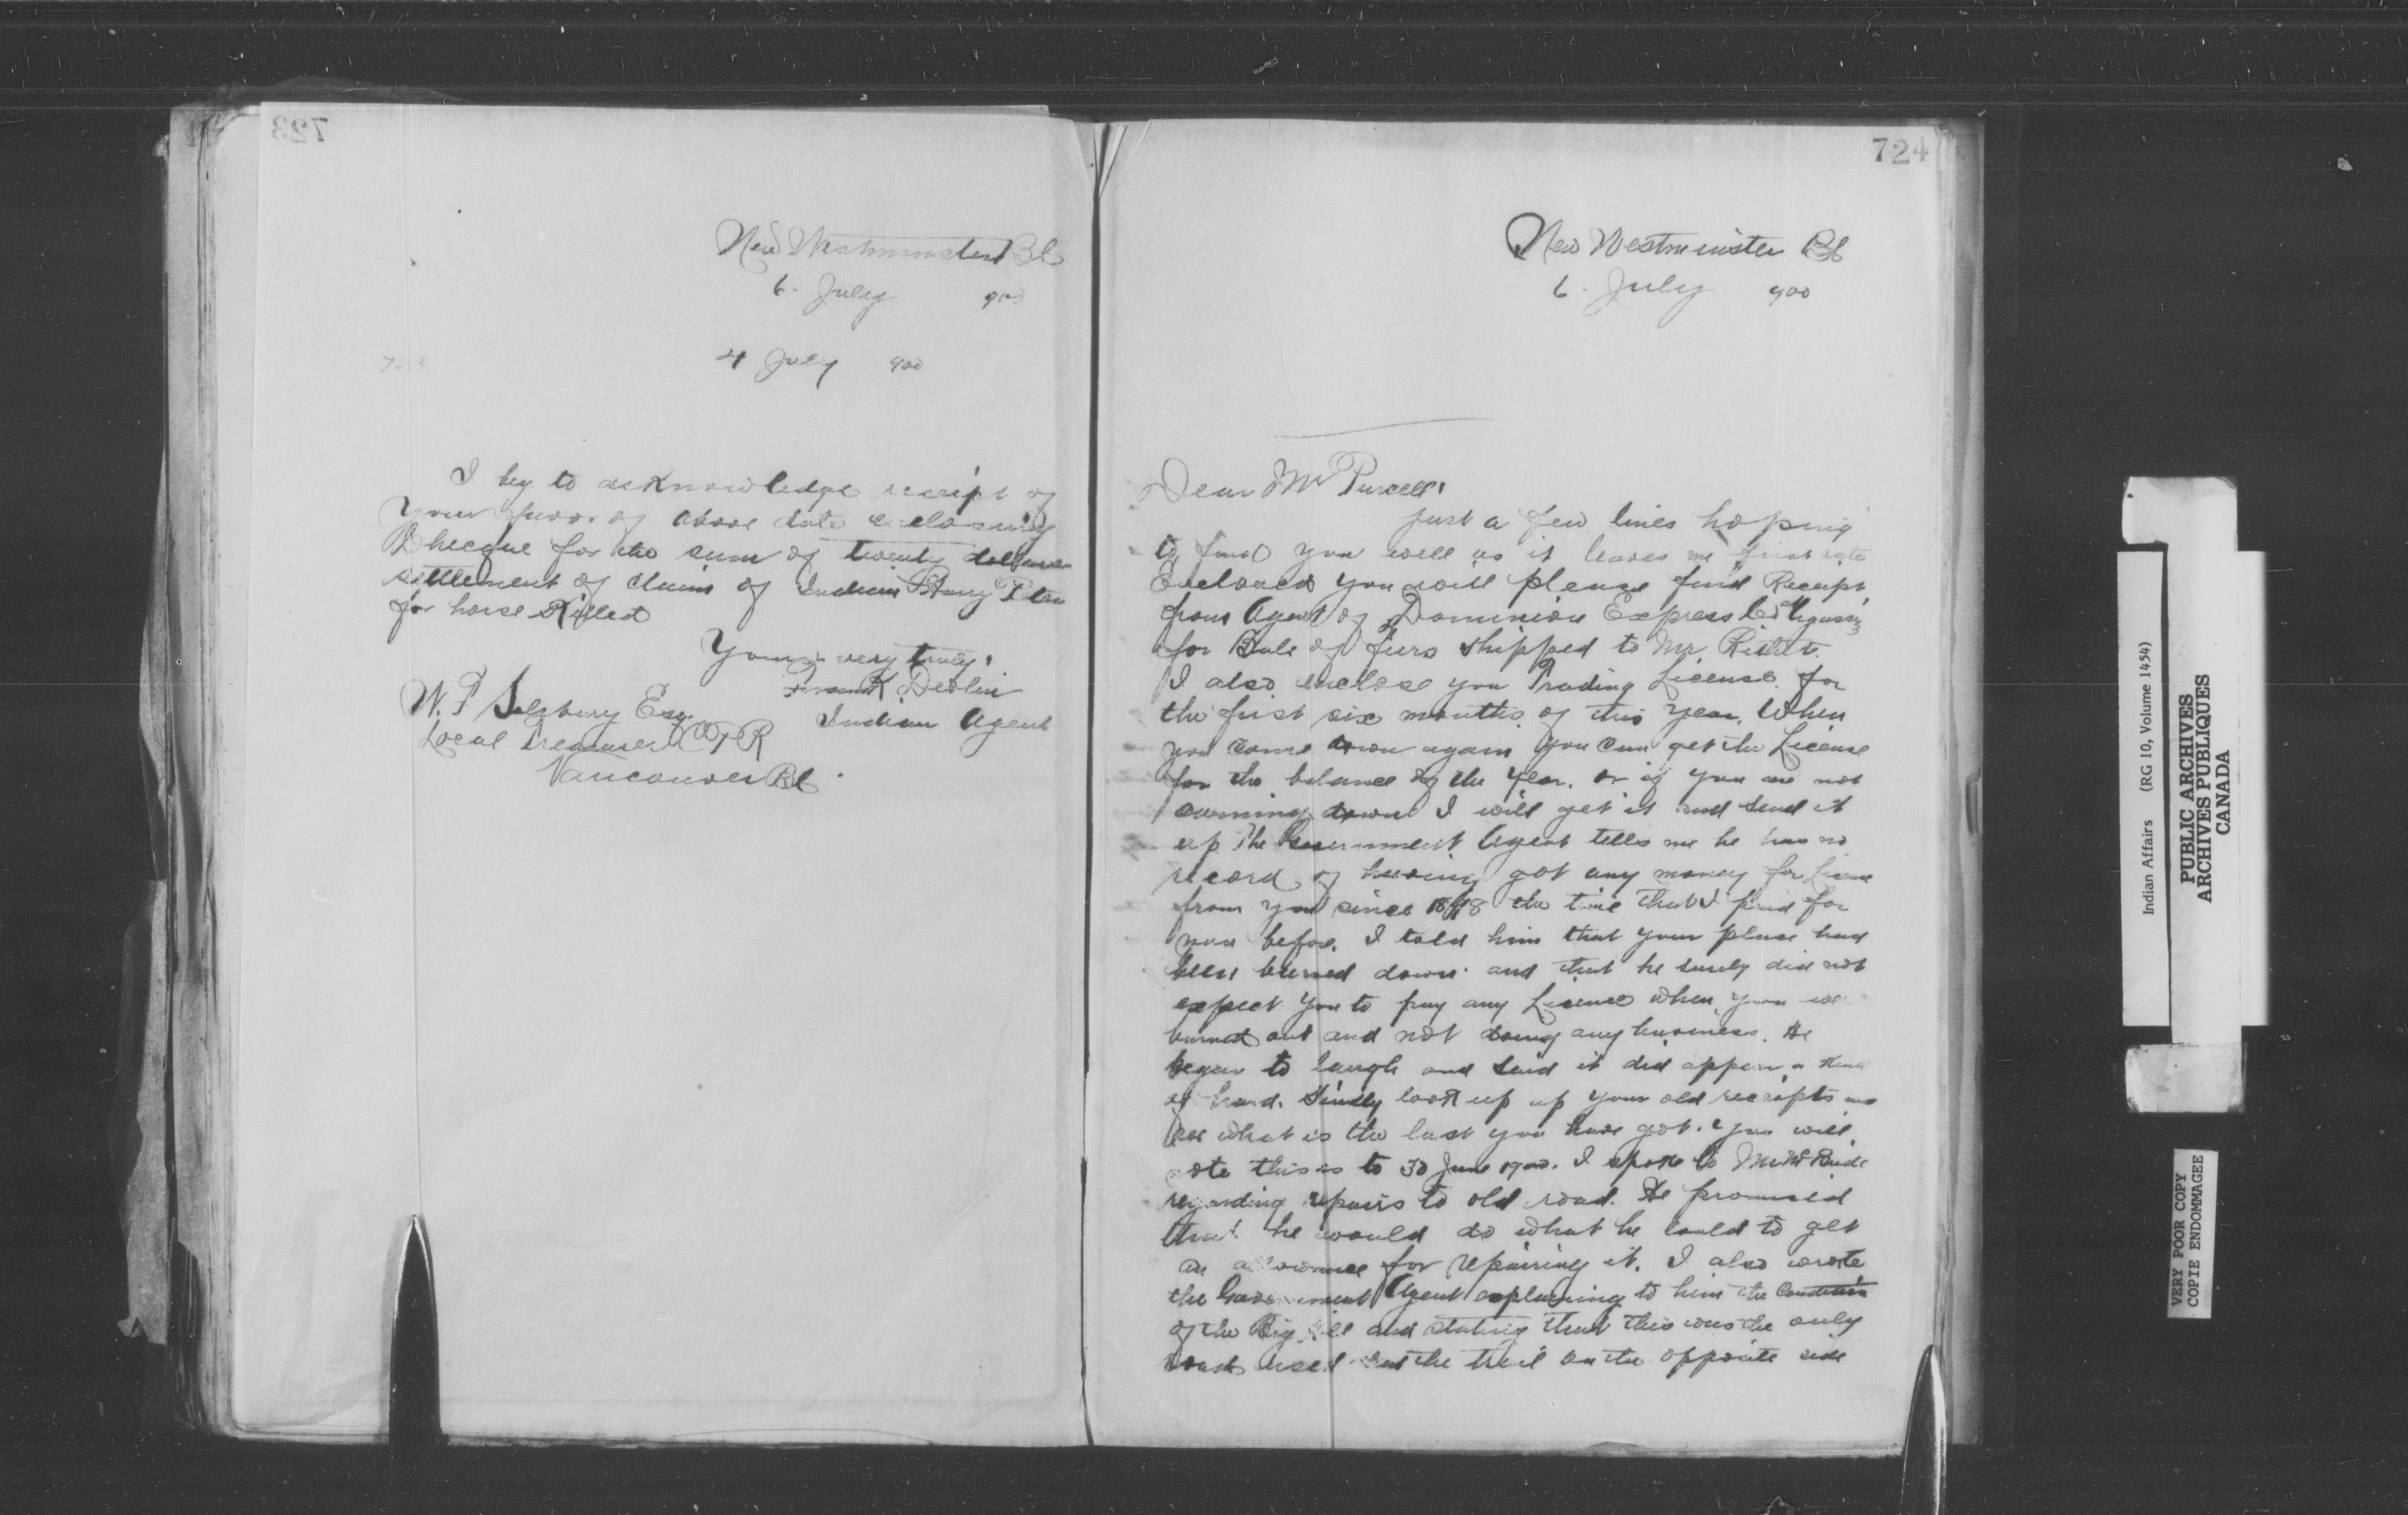 723
New Westminster BC
6 - July 900
723
4 July 900
I beg to acknowledge receipt of
Your favor of above date enclosing
Cheque for the sum of twenty dollars
settlement of claim of Indian Harry Peter
for horse Killed
Yours very truly,
Frank Devlin
Indian Agent
W. F Salsbury Esq.
Local Treasurer CPR
Vancouver BC
724
New Westminster BC
6 - July 900
Dear Mr Purcell,
Just a few lines hoping
to find you well as it leaves me first rate
Enclosed you will please find Receipt
from Agent of Dominion Express Co
for Bale of furs shipped to Mr
I also enclose you Trading License for
the first six months of this Year. When
you come down again you can get the License
for the balance of the Year. or if you are not
coming down I will get it and send it
up The Government Agent tells me he has no
record of having got any money for License
from you since the time that I paid for
you before. I told him that your place had
been burned down and that he surely did not
expect you to pay any License when you were
burned out and not doing any business. He
began to laugh and said it did appear a kind
of hard. Kindly look up up your old receipts and
see what is the last you have got. You will
note this is to 30 June 1900. I spoke to Mr
regarding repairs to old road. He promised
that he would do what he could to get
an allowance for repairing it. I also wrote
the Government Agent explaining to him the Condition
of the Big Hill and stating that this was the only
road used and the trail on the opposite side
Indian Affairs (RG 10, Volume 1454)
PUBLIC ARCHIVES
ARCHIVES PUBLIQUES
CANADA
VERY POOR COPY
COPIE ENDOMMAGEE